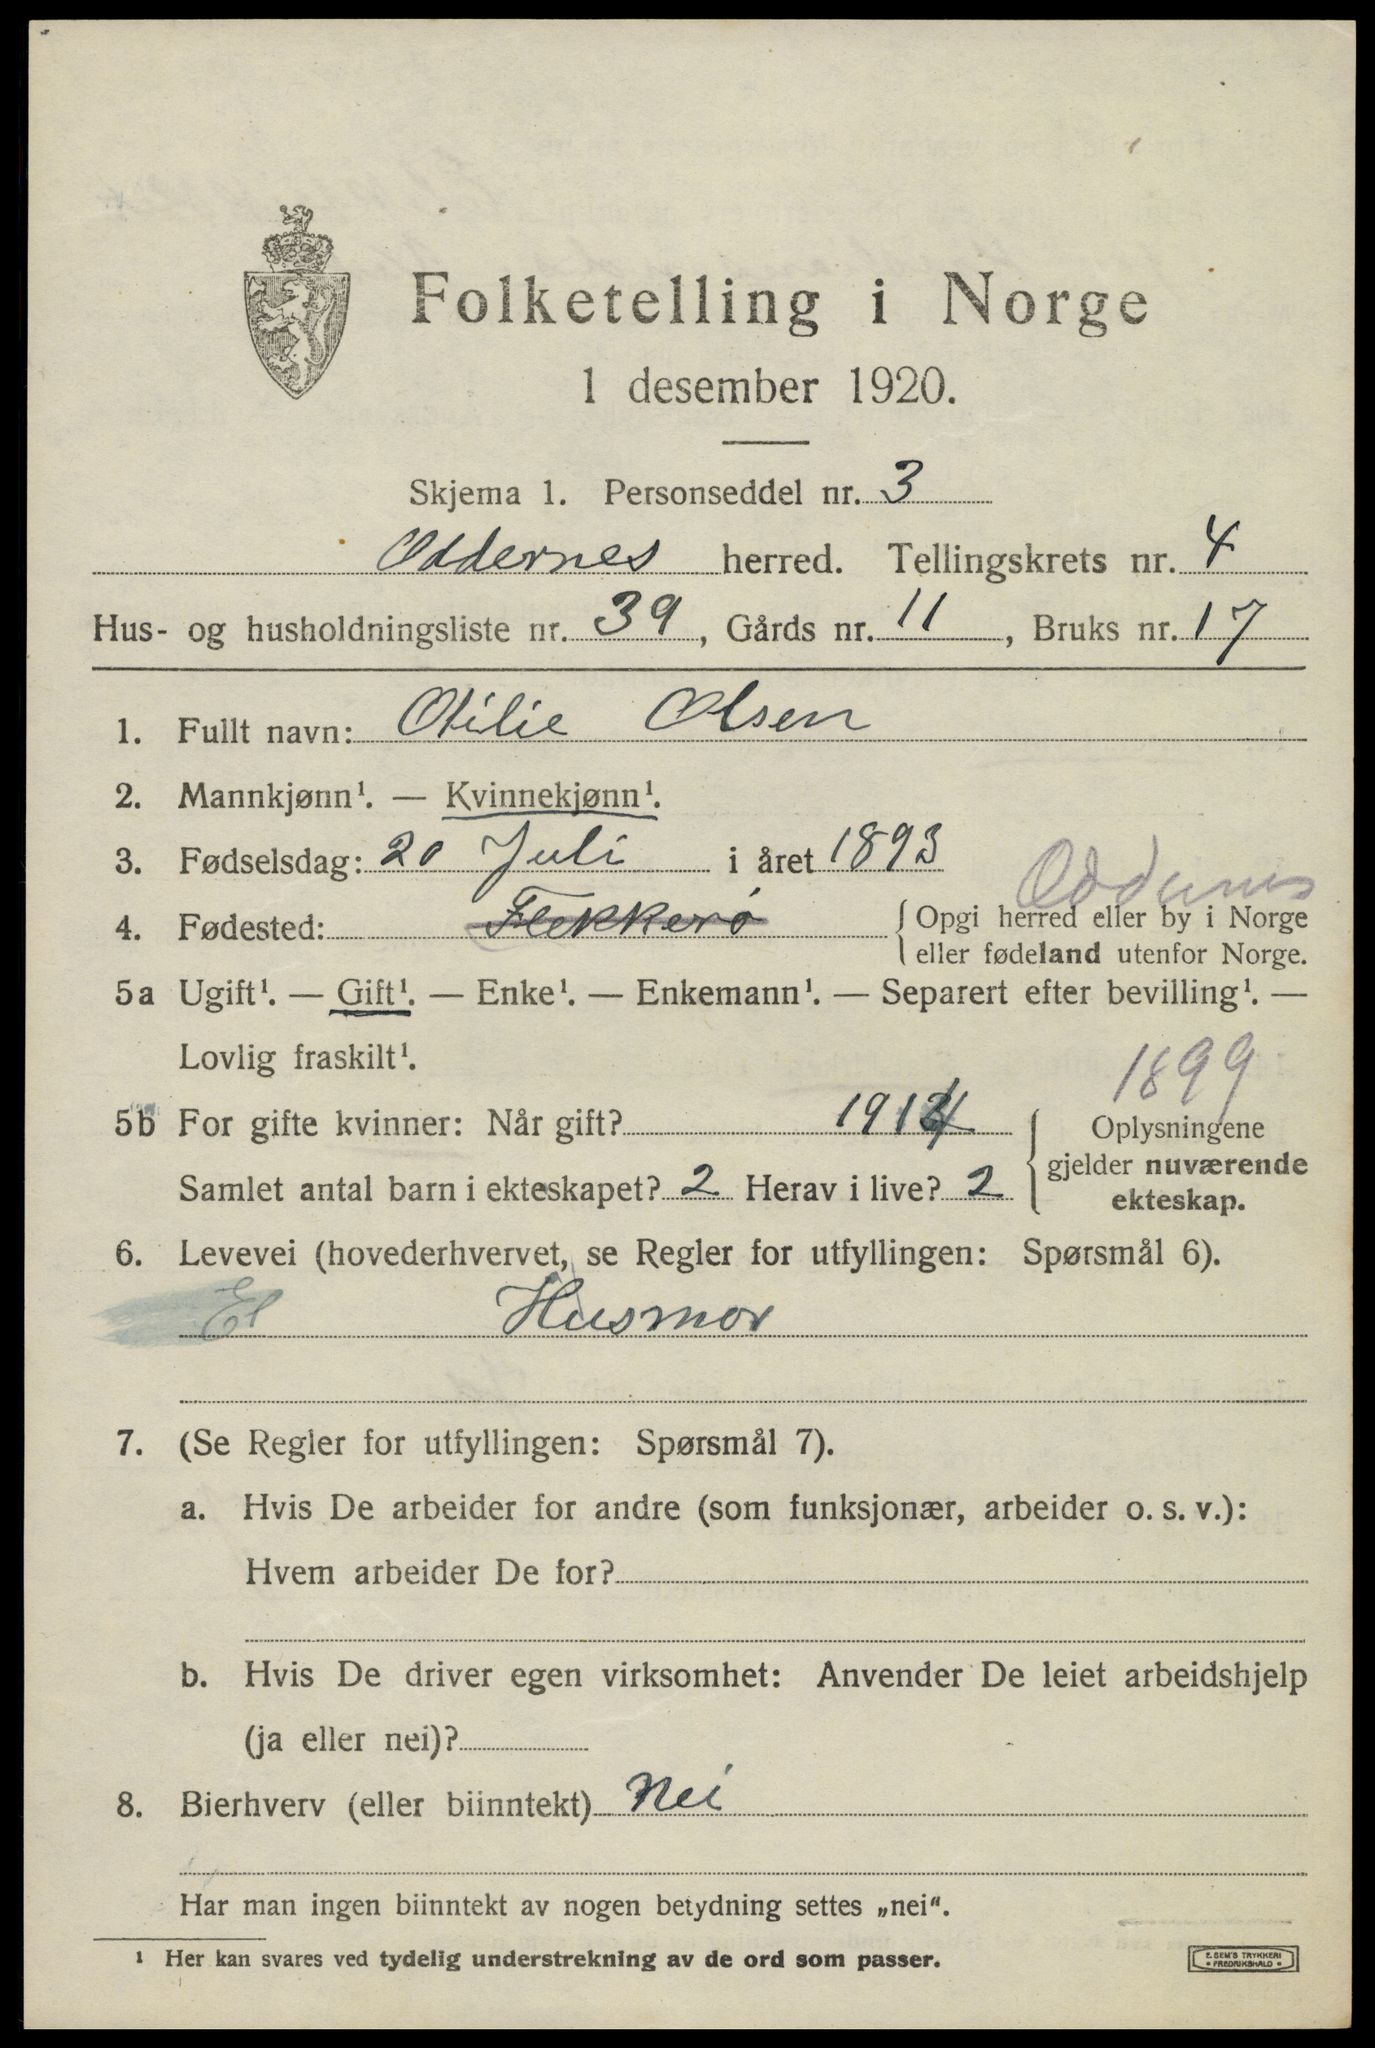 Folketelling i Norge
1 desember 1920.
Skjema 1. Personseddel nr. 3
Oddernes herred. Tellingskrets nr. 4
Hus- og husholdningsliste nr. 39, Gårds nr. 11, Bruks nr. 17
1. Fullt navn: Otilie Olsen
2. Mannkjønn¹. — Kvinnekjønn¹.
3. Fødselsdag: 20 Juli i året 1893
Oddernes
4. Fødested: Flekkerø { Opgi herred eller by i Norge
eller fødeland utenfor Norge.
5a Ugift¹. — Gift¹. — Enke¹. — Enkemann¹. — Separert efter bevilling¹. —
Lovlig fraskilt¹.
1899
5b For gifte kvinner: Når gift? 1914 { Oplysningene
gjelder nuværende
ekteskap.
Samlet antal barn i ekteskapet? 2 Herav i live? 2
6. Levevei (hovederhvervet, se Regler for utfyllingen: Spørsmål 6).
El Husmor
7. (Se Regler for utfyllingen: Spørsmål 7).
a. Hvis De arbeider for andre (som funksjonær, arbeider o. s. v.):
Hvem arbeider De for?
b. Hvis De driver egen virksomhet: Anvender De leiet arbeidshjelp
(ja eller nei)?
8. Bierhverv (eller biinntekt) Nei
Har man ingen biinntekt av nogen betydning settes „nei“.
¹ Her kan svares ved tydelig understrekning av de ord som passer.
E. SEM'S TRYKKERI
• FREDRIKSHALD •